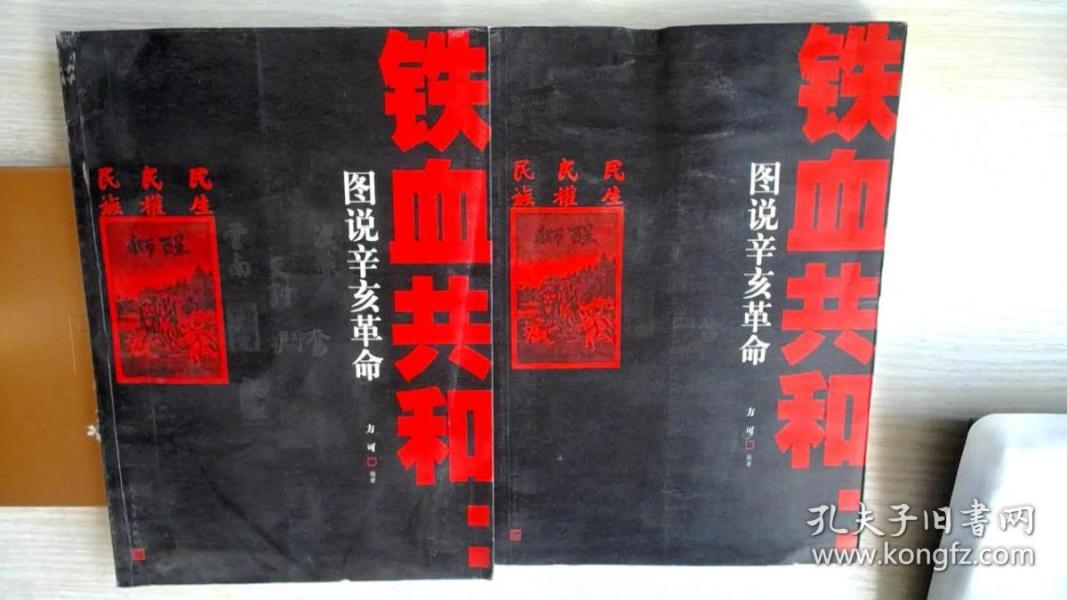 铁血共和：
图说辛亥革命
方可 编著
民族
民权
民生
狮醒
铁血共和：
图说辛亥革命
方可 编著
民族
民權
民生
狮醒
孔夫子旧书网
www.kongfz.com